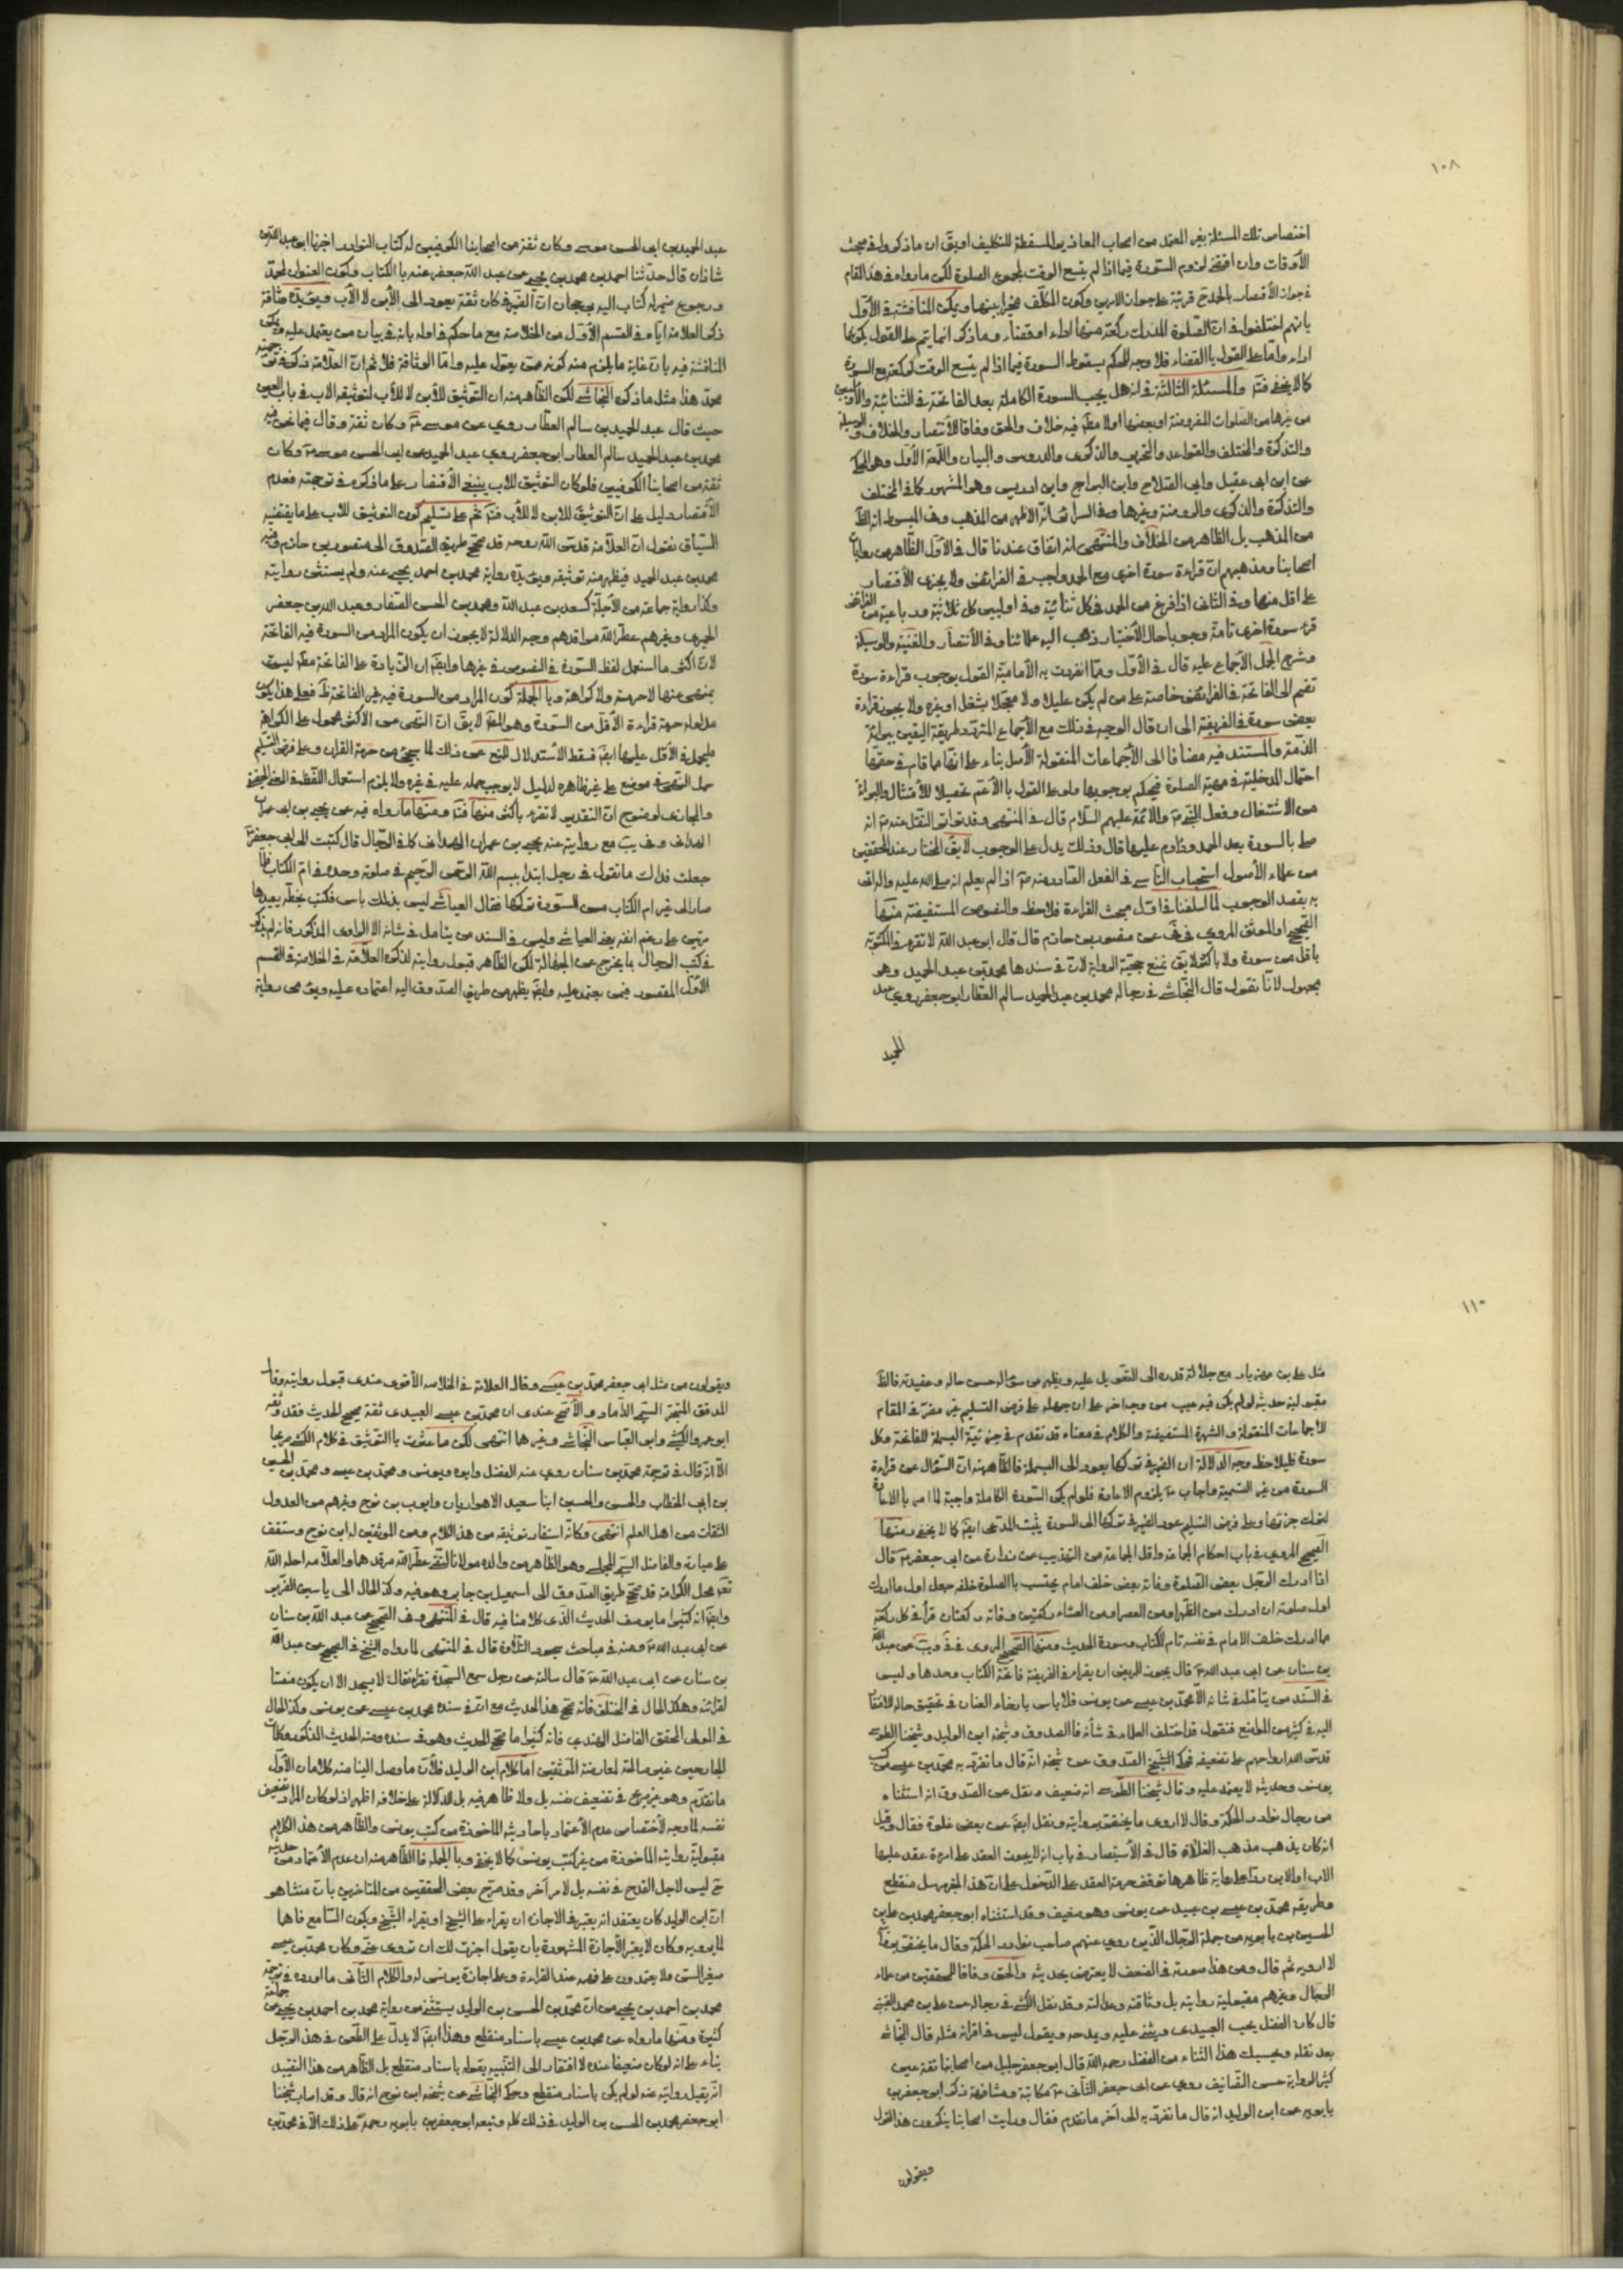 ١٠٨
اختصاص تلك المسئلة بغير العمد من اصحاب المعاذير المسقطة للتكليف اويق ان ما ذكروا في مبحث
الأوقات وان اقتضى لزوم السورة فيما اذا لم يتسع الوقت لمجموع الصلوة لكن ما رواه في هذا المقام
بانهم اختلفوا في ان الصلوة المدرك ركعة منها اداء او قضاء وما ذكر انما يتم على القول بكونها
اداء واما على القول بالقضاء فلا وجه للحكم بسقوط السورة فيما اذا لم يتسع الوقت لركعة مع السورة
كما لا يخفى والمسئلة الثالثة في انه هل يجب السورة الكاملة بعد الفاتحة في الثنائية والأوليين
من غيرها من الصلوات المفروضة او بعضها اولا مط فيه خلاف والحق وفاقا للأنتصار والخلاف والوسيلة
والتذكرة والمختلف والقواعد والتحرير والذكرى والدروس والبيان واللمعة الأول وهو المحكى
عن ابن ابى عقيل وابى الصلاح وابن البراج وابن ادريس وهو المشهور كما في المختلف
والتذكرة والذكرى والروضة وغيرها وفي السرائر انه الاظهر من المذهب وفي المبسوط انه الظ
من المذهب بل الظاهر من الخلاف والمنتهى انه اتفاق عندنا قال في الأول الظاهر من روايات
اصحابنا ومذهبهم ان قراءة سورة اخرى مع الحمد واجب في الفرائض ولا يجزى الأقتصار
على اقل منها وفي الثانى اذا فرغ من الحمد في كل ثنائية وفي اوليين كل ثلاثية ورباعية من الفرائض
قرء سورة اخرى تامة وجوبا حال الأختيار ذهب اليه علمائنا وفي الأنتصار والغنية والوسيلة
وشرح الجمل الأجماع عليه قال في الأول ومما انفردت به الأمامية القول بوجوب قراءة سورة
تضم الى الفاتحة في الفرائض خاصة على من لم يكن عليلا ولا معجلا بشغل او غيره ولا يجوز قراءة
بعض سورة في الفريضة الى ان قال الوجه في ذلك مع الأجماع المتردد طريقة اليقين ببراءة
الذمة والمستند فيه مضافا الى الأجماعات المنقولة الأصل بناء على انها مما قام في حقها
احتمال المدخلية في مهية الصلوة فيحكم بوجوبها ولو على القول بالأعم تحصيلا للأمتثال والبراءة
من الاشتغال وفعل النبي والائمة عليهم السلام قال في المنتهى وقد تواتر النقل عنه انه
صلى بالسورة بعد الحمد وداوم عليها قال وذلك يدل على الوجوب لايق المختار عند المحققين
من علماء الأصول استحباب التاسى في الفعل الصادر عنه اذا لم يعلم انه صلى الله عليه واله اتى
به بقصد الوجوب لما اسلفنا في اول مبحث القراءة فلاحظ والنصوص المستفيضة منها
الصحيح او الموثق المروى في عن منصور بن حازم قال قال ابو عبد الله لا تقرء في المكتوبة
باقل من سورة ولا باكثر لايق نمنع حجية الرواية لان في سندها محمد بن عبد الحميد وهو
مجهول لانا نقول قال النجاشى في رجاله محمد بن عبد الحميد سالم العطار ابو جعفر روى عبد
الحميد
عبد الحميد بن ابى الحسن موسى وكان ثقة من اصحابنا الكوفيين له كتاب النوادر اخبرنا ابو عبد الله بن
شاذان قال حدثنا احمد بن محمد بن يحيى عن عبد الله جعفر عنه بالكتاب وكون العنوان لمحمد
ورجوع ضمير له كتاب اليه يرجحان ان الضمير في كان ثقة يعود الى الأبن لا الأب ويؤيده وثاقة
ذكر العلامة اياه في القسم الأول من الخلاصة مع ما حكم في اوله بانه في بيان من يعتمد عليه ويمكن
المناقشة فيه بان غاية ما يلزم منه كونه ممن يعول عليه واما الوثاقة فلا ثم ان العلامة ذكر في ترجمة
محمد هذا مثل ما ذكره النجاشى لكن الظاهر منه ان التوثيق للأبن لا للأب لتوثيقه الاب في باب العين
حيث قال عبد الحميد بن سالم العطار روى عن موسى وكان ثقة وقال فيما نحن فيه
محمد بن عبد الحميد سالم العطار ابو جعفر روى عبد الحميد عن ابى الحسن موسى وكان
ثقة من اصحابنا الكوفيين فلو كان التوثيق للاب ينبغى الأقتصار على ما ذكره في ترجمته فعدم
الأقتصار دليل على ان التوثيق للابن لا للأب ثم على تسليم كون التوثيق للاب على ما يقتضيه
السياق نقول ان العلامة قدس الله روحه قد صحح طريق الصدوق الى منصور بن حازم وفيه
محمد بن عبد الحميد فيظهر منه توثيقه ويؤيده رواية محمد بن احمد يحيى عنه ولم يستثن روايته
وكذا رواية جماعة من الأجلة كسعد بن عبد الله ومحمد بن الحسن الصفار وعبد الله بن جعفر
الحميرى وغيرهم عطر الله مراقدهم وجه الدلالة لا يجوز ان يكون المراد من السورة فيه الفاتحة
لان اكثر ما استعمل لفظ السورة في النصوص في غيرها وايضا ان الزيادة على الفاتحة مط ليست
بمنهى عنها لا حرمة ولا كراهة وبالجملة كون المراد من السورة فيه غير الفاتحة ظ فعلى هذا يكون
مدلوله حرمة قراءة الأقل من السورة وهو المط لايق ان النهى عن الاكثر محمول على الكراهة
فليحمل في الأقل عليها ايضا فسقط الأستدلال للمنع عن ذلك لما سيجئ من حرمة القران وعلى فرض التسليم
حمل النهى في موضع على غير ظاهره لدليل لا يوجب حمله عليه في غيره ولا يلزم استعمال اللفظ في المعنى الحقيقى
والمجازى لوضوح ان التقدير لا تقرء باكثر منها ومنها ما رواه فيه عن يحيى بن ابى عمران
الهمدانى وفي يب مع روايته عنه يحيى بن عمران الهمدانى كما في الرجال قال كتبت الى ابى جعفر
جعلت فداك ما تقول في رجل ابتدء ببسم الله الرحمن الرحيم في صلوته وحده في ام الكتاب فلما
صار الى غير ام الكتاب من السورة تركها فقال العياشى ليس بذلك باس فكتب بخطه يعيدها
مرتين على رغم انفه يعنى العياشى وليس في السند من يتامل في شانه الا الراوى المذكور فانه لم يذكر
في كتب الرجال بما يخرج عن الجهالة لكن الظاهر قبول روايته لذكره العلامة في الخلاصة في القسم
الأول المقصور فيمن يعتمد عليه وايضا يظهر من طريق الصدوق اليه اعتماده عليه ويؤيده رواية
١١٠
مثل على بن مهزيار مع جلالة قدره الى التعويل عليه ويظهر من سؤاله حسن حاله وعقيدته فالظ
مقبولية حديثه لو لم يكن فيه عيب من وجه اخر على ان جهله على فرض التسليم غير مضر في المقام
للأجماعات المنقولة والشهرة المستفيضة والكلام في معناه قد تقدم في جزئية البسملة للفاتحة وكل
سورة فليلاحظ وجه الدلالة ان الضمير في تركها يعود الى البسملة فالظاهر منه ان السؤال عن قراءة
السورة من غير التسمية واجاب بلزوم الاعادة فلو لم يكن السورة الكاملة واجبة لما امر بالاعادة
لترك جزئها وعلى فرض التسليم عود الضمير في تركها الى السورة يثبت المدعى ايضا كما لا يخفى ومنها
الصحيح المروى في باب احكام الجماعة واقل الجماعة من التهذيب عن زرارة عن ابى جعفر قال
اذا ادرك الرجل بعض الصلوة وفاته بعض خلف امام يحتسب بالصلوة خلفه جعل اول ما ادرك
اول صلوته ان ادرك من الظهر او من العصر او من العشاء ركعتين وفاته ركعتان قرأ في كل ركعة
مما ادرك خلف الامام في نفسه بام الكتاب وسورة الحديث ومنها الصحيح المروى في في ويب عن عبد الله
بن سنان عن ابى عبد الله قال يجوز للمريض ان يقرء في الفريضة فاتحة الكتاب وحدها وليس
في السند من يتامل في شانه الا محمد بن عيسى عن يونس فلا باس بارخاء العنان في تحقيق حاله للافتقار
اليه في كثير من المواضع فنقول قد اختلف العلماء في شأنه فالصدوق وشيخه ابن الوليد وشيخنا الطوسى
قدس الله ارواحهم على تضعيفه فحكى الشيخ الصدوق عن شيخه انه قال ما تفرد به محمد بن عيسى من كتب
يونس وحديثه لا يعتمد عليه وقال شيخنا الطوسى انه ضعيف ونقل عن الصدوق انه استثناه
من رجال نوادر الحكمة وقال لا اروى ما يختص بروايته ونقل ايضا عن بعض غلوه فقال وقيل
انه كان يذهب مذهب الغلاة قال في الأستبصار في باب انه لا يجوز العقد على امرءة عقد عليها
الاب او الابن بعد رواية ظاهرها توقف حرمة العقد على الدخول على ان هذا الخبر مرسل منقطع
وطريقه محمد بن عيسى بن عبيد عن يونس وهو ضعيف وقد استثناه ابو جعفر محمد بن على بن
الحسين بن بابويه من جملة الرجال الذين روى عنهم صاحب نوادر الحكمة وقال ما يختص بروايته
لا ارويه ثم قال ومن هذا صورته في الضعف لا يعترض بحديثه والحق وفاقا للمحققين من علماء
الرجال وغيرهم مقبولية روايته بل وثاقته وعدالته وقد نقل الكشى في رجاله عن على بن محمد القتيبى
قال كان الفضل يحب العبيدى ويثنى عليه ويمدحه ويقول ليس في اقرانه مثله قال النجاشى
بعد نقله وبحسبك هذا الثناء من الفضل رحمه الله قال ابو جعفر جليل من اصحابنا ثقة عين
كثير الرواية حسن التصانيف روى عن ابى جعفر الثانى مكاتبة ومشافهة ذكر ابو جعفر بن
بابويه عن ابن الوليد انه قال ما تفرد به الى آخر ما تقدم فقال ورايت اصحابنا ينكرون هذا القول
ويقولون
ويقولون من مثل ابى جعفر محمد بن عيسى وقال العلامة في الخلاصه الأقوى عندى قبول روايته وقال
المدقق المتبحر السيد الداماد والأصح عندى ان محمد بن عيسى العبيدى ثقة صحيح الحديث فقد وثقه
ابو عمرو الكشى وابو العباس النجاشى وغيرها انتهى لكن ما عثرت بالتوثيق في كلام الكشى صريحا
الا انه قال في ترجمة محمد بن سنان روى عنه الفضل وابوه ويونس ومحمد بن عيسى ومحمد بن الحسين
بن ابى الخطاب والحسن والحسين ابنا سعيد الاهوازيان وايوب بن نوح وغيرهم من العدول
الثقات من اهل العلم انتهى وكانه استفاد توثيقه من هذا الكلام ومن الموثقين له ابن نوح وستقف
على عبارته والفاضل السمى المجلسى وهو الظاهر من والده مولانا التقى عطر الله مرقدهما والعلامه احله الله
محل الكرامة قد صحح طريق الصدوق الى اسمعيل بن جابر وهو فيه وكذا الحال الى ياسين الضرير
وايضا انه كثيرا ما يوصف الحديث الذى كلامنا فيه قال في المنتهى وفي الصحيح عن عبد الله بن سنان
عن ابى عبد الله ومنه في مباحث سجود التلاوة قال في المنتهى لما رواه الشيخ في الصحيح عن عبد الله
بن سنان عن ابى عبد الله قال سالته عن رجل سمع السجدة تقرء فقال لا يسجد الا ان يكون منصتا
لقرائته وهكذا الحال في المختلف فانه صحح هذا الحديث مع ان في سنده محمد بن عيسى عن يونس وكذا الحال
في المولى المحقق الفاضل الهندى فانه كثيرا ما صحح الحديث وهو في سنده ومنه الحديث المذكور وكلمات
الجارحين غير صالحة لمعارضة الموثقين اما كلام ابن الوليد فلأن ما وصل الينا منه كلامان الأول
ما تقدم وهو غير صريح في تضعيف نفسه بل ولا ظاهر فيه بل الدلالة على خلافه اظهر اذ لو كان المراد تضعيف
نفسه لما وجه لأختصاص عدم الأعتماد باحاديثه الماخوذة من كتب يونس والظاهر من هذا الكلام
مقبولية روايته الماخوذة من غير كتب يونس كما لا يخفى وبالجملة فالظاهر منه ان عدم الأعتماد من حديثه
ح ليس لاجل القدح في نفسه بل لامر آخر وقد صرح بعض المحققين من المتاخرين بان منشاه هو
ان ابن الوليد كان يعتقد انه يعتبر في الاجازة ان يقراء على الشيخ او يقراء الشيخ ويكون السامع فاهما
لما يرويه وكان لا يعتبر الأجازة المشهورة بان يقول اجزت لك ان تروى عنى وكان محمد بن عيسى
صغير السن ولا يعتمدون على فهمه عند القراءة وعلى اجازة يونس له والكلام الثانى ما اورده في ترجمة
محمد بن احمد بن يحيى من ان محمد بن الحسن بن الوليد يستثنى من رواية محمد بن احمد بن يحيى عن جماعة
كثيرة ومنها ما رواه عن محمد بن عيسى باسناد منقطع وهذا ايضا لا يدل على الطعن في هذا الرجل
بناء على انه لو كان ضعيفا عنده لا افتقار الى التقييد بقوله باسناد منقطع بل الظاهر من هذا التقييد
انه يقبل روايته عنه لو لم يكن باسناد منقطع وحكى النجاشى عن شيخه ابن نوح انه قال وقد اصاب شيخنا
ابو جعفر محمد بن الحسن بن الوليد في ذلك كله وتبعه ابو جعفر بن بابويه رحمه الله على ذلك الا في محمد بن